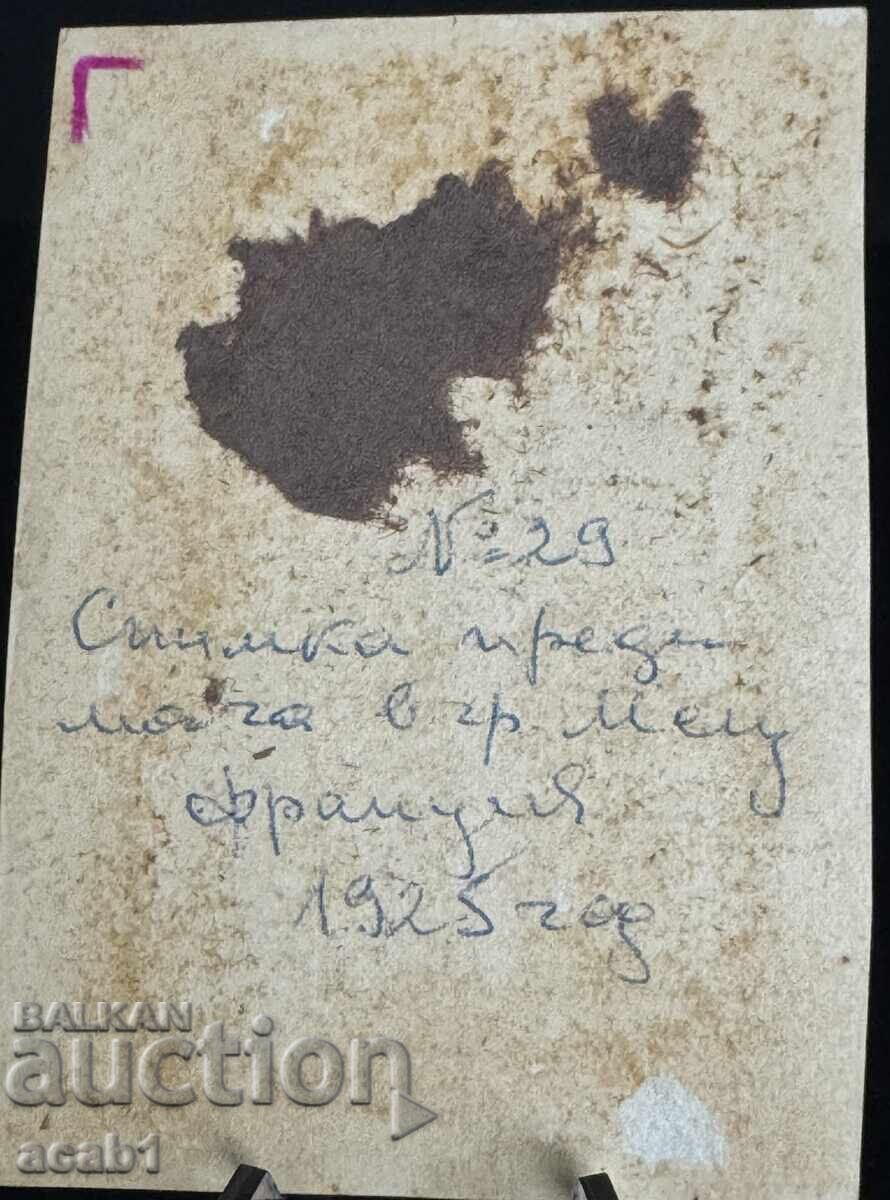 № 29
Снимка преди
мача в гр Мец
Франция
1925 год
BALKAN
auction
acab1